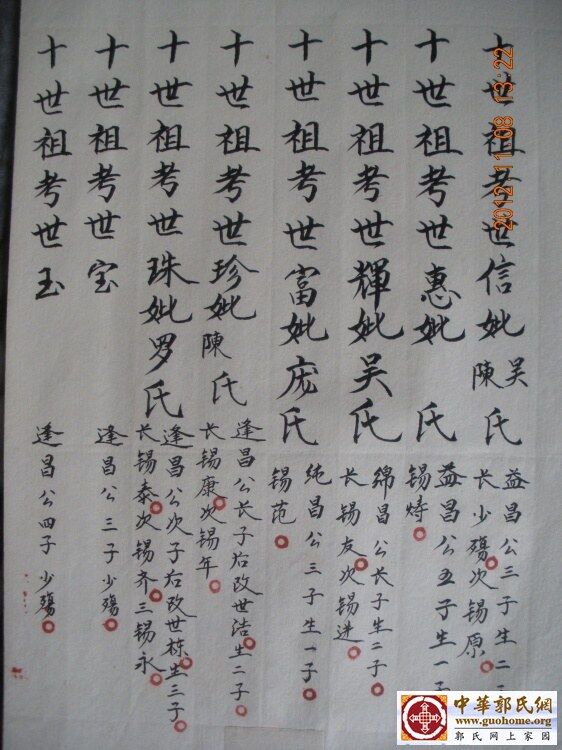 十世祖考世信妣吴陳氏
益昌公三子生二
长少殤次锡原
十世祖考世惠妣 氏
益昌公五子生一子
锡焘
十世祖考世輝妣吴氏
绵昌公长子生二子
长锡友次锡进
十世祖考世富妣庞氏
纯昌公三子生一子
锡范
十世祖考世珍妣陳氏
逢昌公长子后改世浩生二子
长锡康次锡年
十世祖考世珠妣罗氏
逢昌公次子后改世栋生三子
长锡泰次锡齐三锡永
十世祖考世宝
逢昌公三子少殤
十世祖考世玉
逢昌公四子少殤
2012 11 08 13:22
中華郭氏網
www.guohome.org
郭氏网上家园